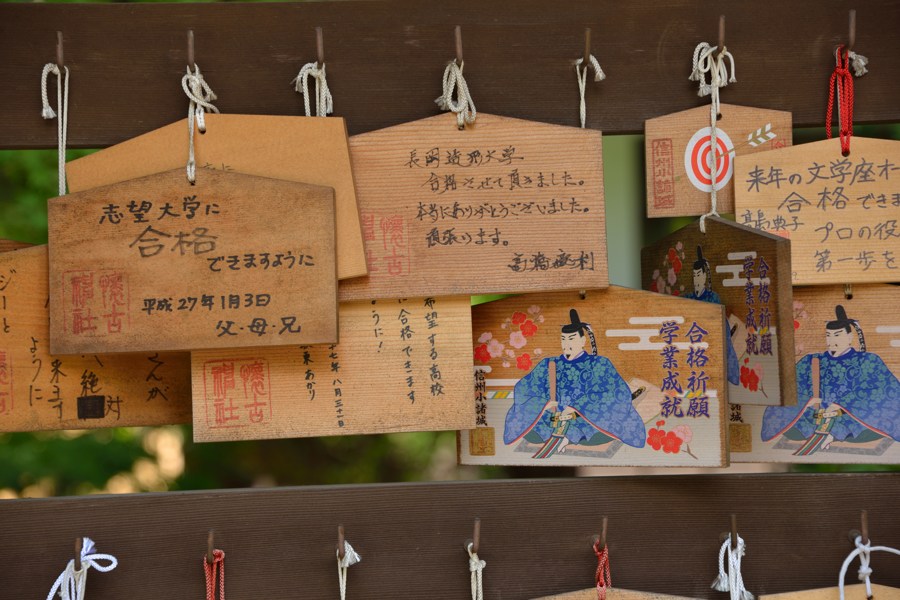 志望大学に
合格
できますように
平成27年1月3日
父・母・兄
懐古
神社
に
長岡造形大学
合格させて頂きました。
本当にありがとうございました。
頑張ります。
懐古
希望する高校
に合格できます
ように!
懐古
神社
合格祈願
学業成就
信州小諸城
合格祈願
学業成就
信州小諸城
来年の文学座オー
合格できま
プロの役
第一歩を
絶対
ように